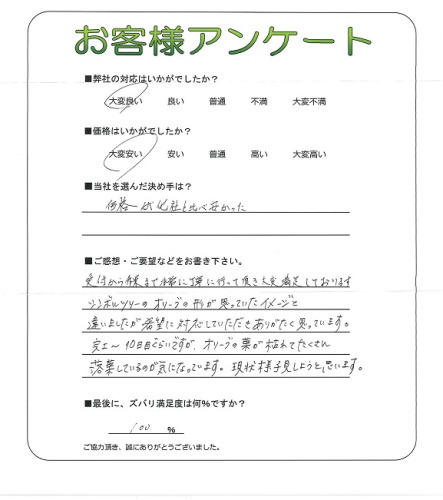 お客様アンケート
■弊社の対応はいかがでしたか?
大変良い 良い 普通 不満 大変不満
■価格はいかがでしたか?
大変安い 安い 普通 高い 大変高い
■当社を選んだ決め手は?
価格が他社と比べ安かった
■ご感想・ご要望などをお書き下さい。
受付から作業まで丁寧に行って頂き大変満足しております
シンボルツリーのオリーブの形が思っていたイメージと
違いましたが希望に対応していただきありがたく思っています。
完工〜10日目ぐらいですが、オリーブの葉が枯れてたくさん
落葉しているのが気になっています。現状様子見しようと思います。
■最後に、ズバリ満足度は何%ですか?
100 %
ご協力頂き、誠にありがとうございました。